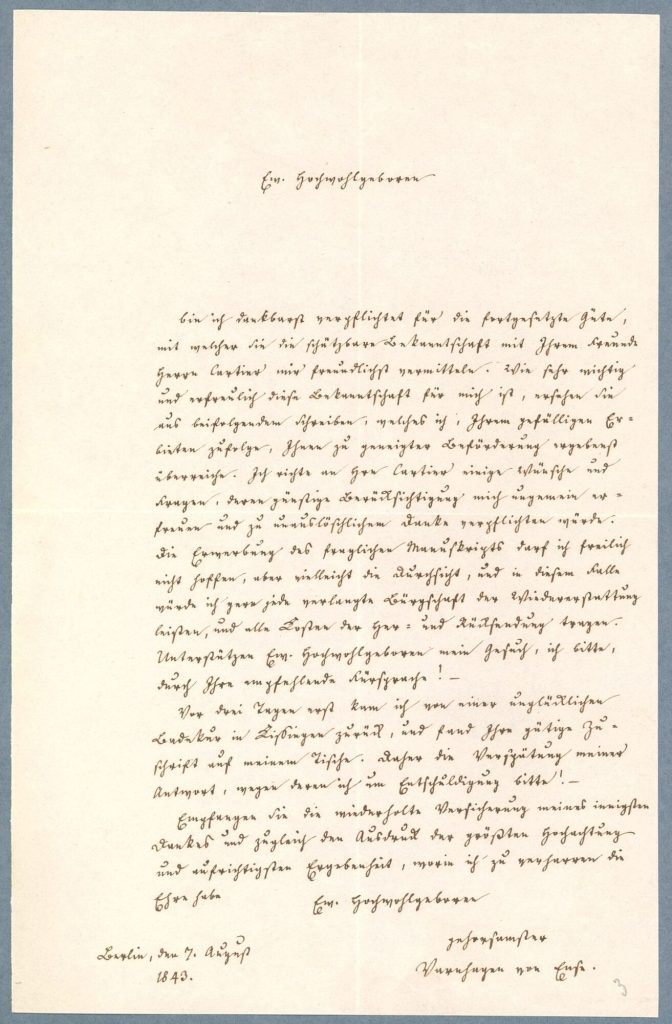 Ew. Hochwohlgeboren
bin ich dankbarst verpflichtet für die fortgesetzte Güte,
mit welcher Sie die schätzbare Bekanntschaft mit Ihrem Freunde
Herrn Cartier mir freundlichst vermitteln. Wie sehr wichtig
und erfreulich diese Bekanntschaft für mich ist, ersehen Sie
aus beifolgendem Schreiben, welches ich, Ihrem gefälligen Er=
bieten zufolge, Ihnen zu geneigter Beförderung ergebenst
überreiche. Ich richte an Hrn Cartier einige Wünsche und
Fragen, deren günstige Berücksichtigung mich ungemein er=
freuen und zu unauslöschlichem Danke verpflichten würde.
Die Erwerbung des fraglichen Manuskripts darf ich freilich
nicht hoffen, aber vielleicht die Durchsicht, und in diesem Falle
würde ich gern jede verlangte Bürgschaft der Wiedererstattung
leisten, und alle Kosten der Her= und Rücksendung tragen.
Unterstützen Ew. Hochwohlgeboren mein Gesuch, ich bitte,
durch Ihre empfehlende Fürsprache! —
Vor drei Tagen erst kam ich von einer unglücklichen
Badekur in Kissingen zurück, und fand Ihre gütige Zu=
schrift auf meinem Tische. Daher die Verspätung meiner
Antwort, wegen deren ich um Entschuldigung bitte! —
Empfangen Sie die wiederholte Versicherung meines innigsten
Dankes und zugleich den Ausdruck der größten Hochachtung
und aufrichtigsten Ergebenheit, worin ich zu verharren die
Ehre habe Ew. Hochwohlgeboren
gehorsamster
Berlin, den 7. August
Varnhagen von Ense.
1843.
3